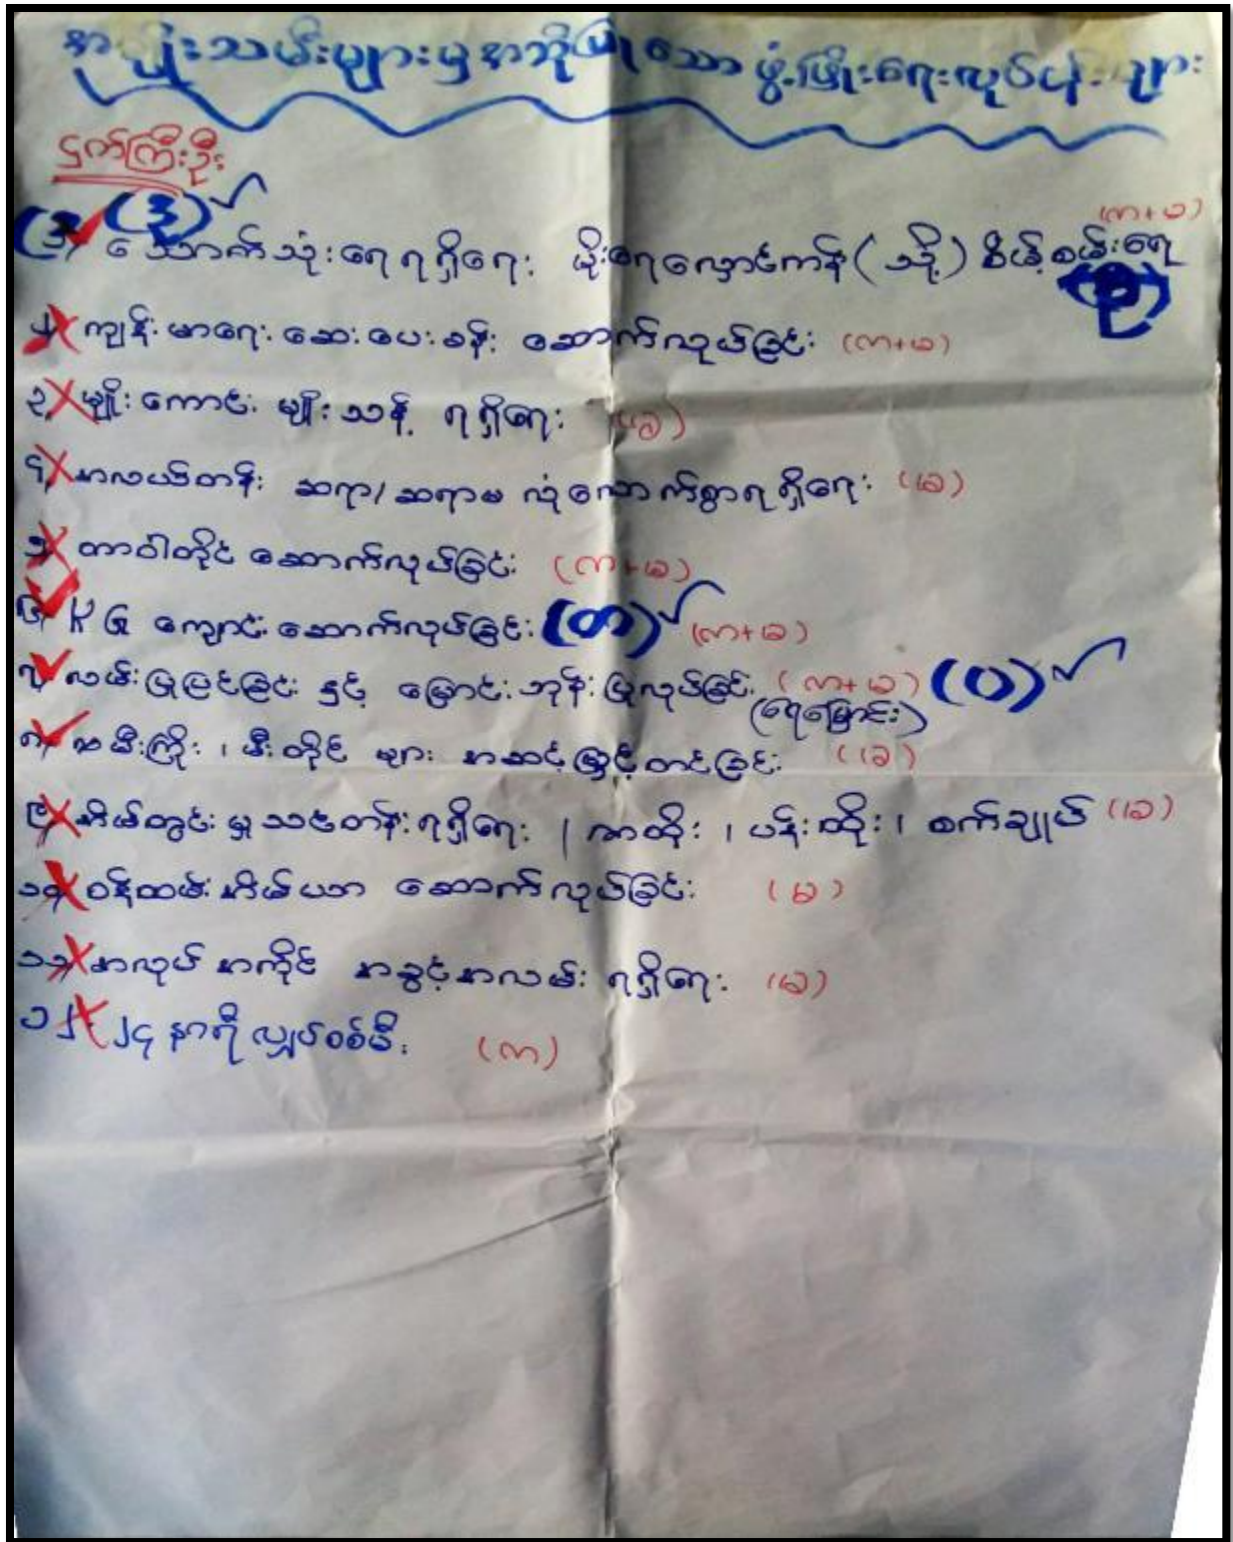 အမျိုးသမီးများမှအဆိုပြုသောဖွံ့ဖြိုးရေးလုပ်ငန်းများ
ငှက်ကြီးဦး
(ဒု)
(က+ခ)
သောက်သုံးရေရရှိရေး မိုးရေလှောင်ကန် (သို့) စိမ့်စမ်းရေ
၂၊ ကျန်းမာရေးဆေးပေးခန်း ဆောက်လုပ်ခြင်း (က+ခ)
၃၊ မျိုးကောင်းမျိုးသန့် ရရှိရေး (ခ)
၄၊ အလယ်တန်း ဆရာ/ဆရာမ လုံလောက်စွာရရှိရေး (ခ)
၅၊ တာဝါတိုင် ဆောက်လုပ်ခြင်း (က+ခ)
၆၊ KG ကျောင်းဆောက်လုပ်ခြင်း (တ) (က+ခ)
၇၊ လမ်းပြုပြင်ခြင်း နှင့် မြောင်းဘုန်းပြုလုပ်ခြင်း (က+ခ) (ပ)
(ရေမြောင်း)
၈၊ မီးကြိုး၊ မီးတိုင် များ အဆင့်မြှင့်တင်ခြင်း (ခ)
၉၊ အိမ်တွင်းမှုသင်တန်းရရှိရေး / ထိုး၊ ပန်းထိုး၊ စက်ချုပ် (ခ)
၁၀၊ ဝန်ထမ်းအိမ်ယာ ဆောက်လုပ်ခြင်း (ခ)
၁၁၊ အလုပ်အကိုင် အခွင့်အလမ်း ရရှိရေး (ခ)
၁၂၊ ၂၄ နာရီ လျှပ်စစ်မီး (က)